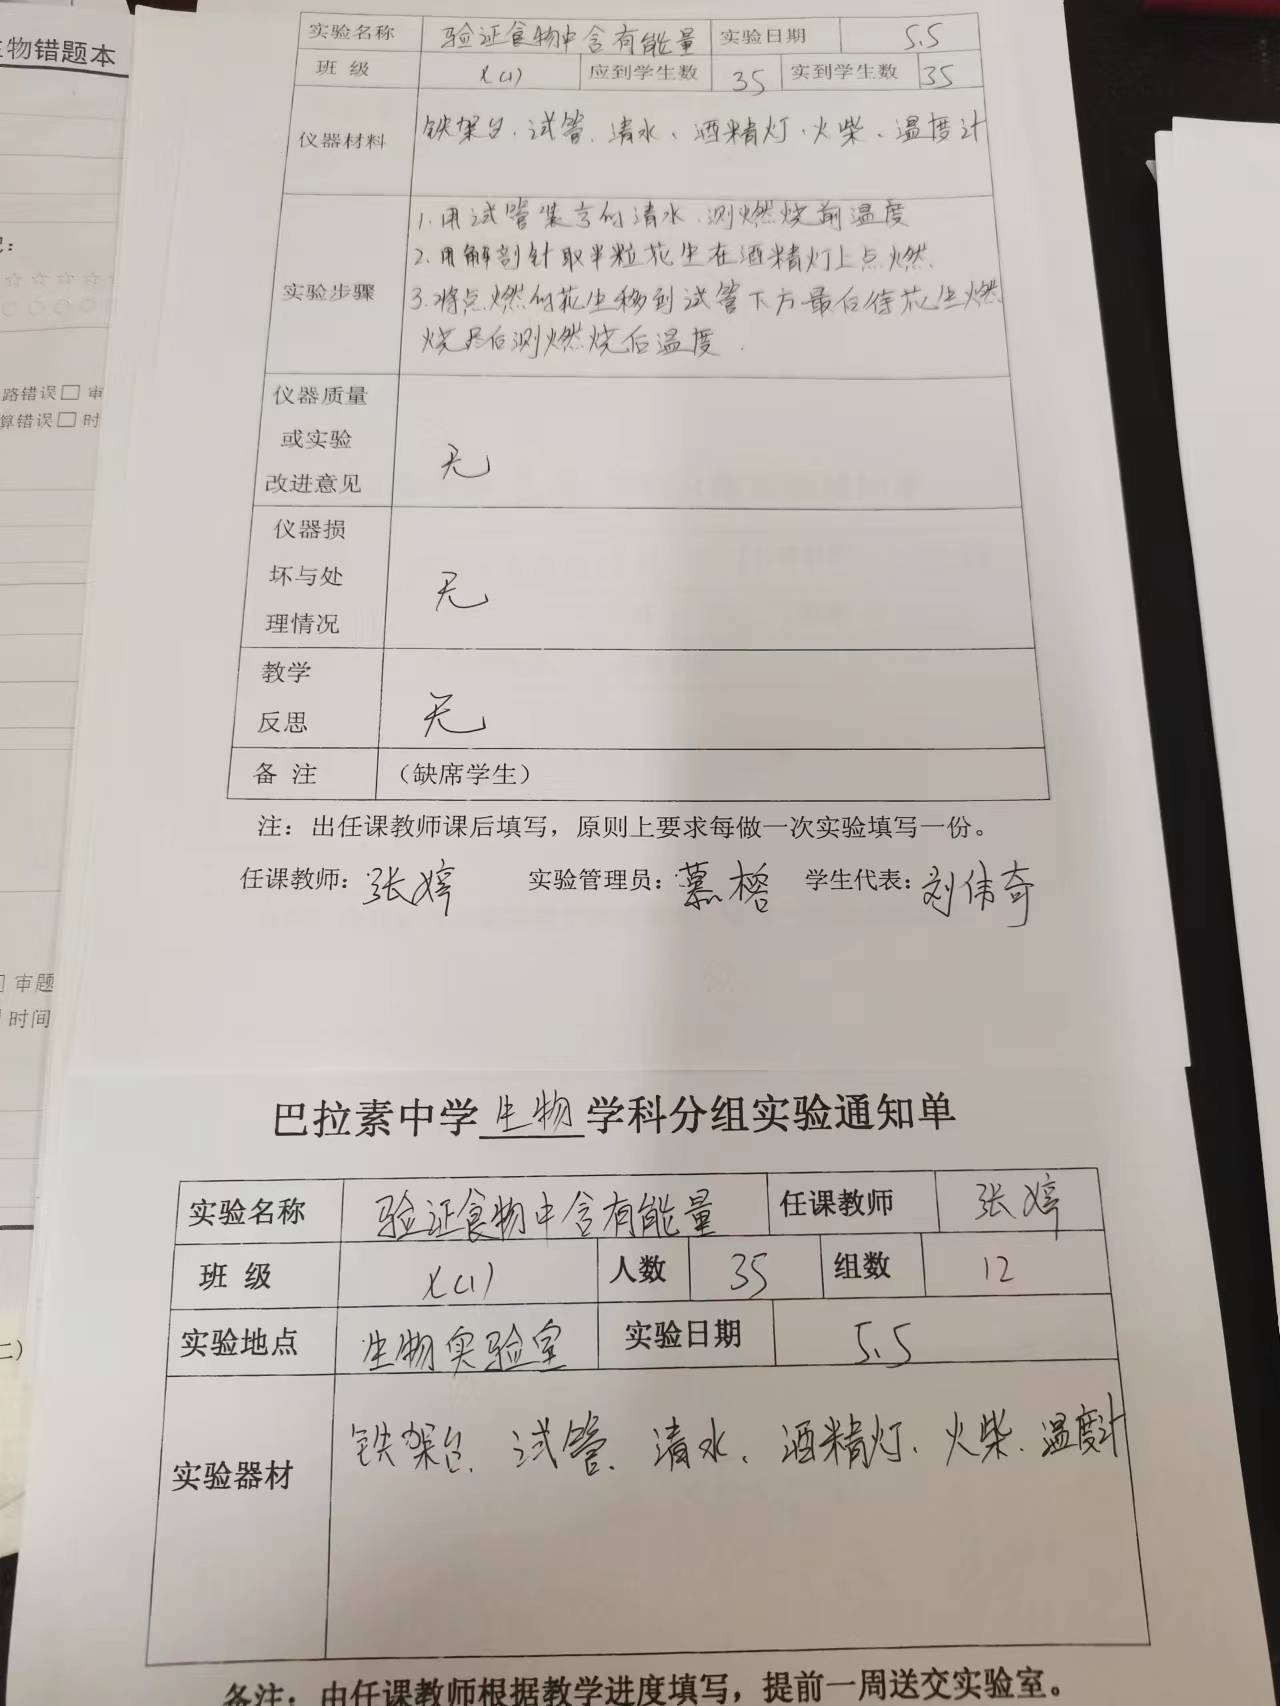 生物错题本
路错误□ 审
算错误□ 时
□ 审题
时间
实验名称 验证食物中含有能量 实验日期 5.5
班 级 七(1) 应到学生数 35 实到学生数 35
仪器材料 铁架台、试管、清水、酒精灯、火柴、温度计
实验步骤
1.用试管装言的清水、测燃烧前温度
2.用解剖针取半粒花生在酒精灯上点燃.
3.将点燃的花生移到试管下方最后待花生燃
烧尽后测燃烧后温度.
仪器质量
或实验
改进意见
无
仪器损
坏与处
理情况
无
教学
反思
无
备 注 （缺席学生）
注：出任课教师课后填写，原则上要求每做一次实验填写一份。
任课教师：张婷 实验管理员：慕榕 学生代表：刘伟奇
巴拉素中学 生物 学科分组实验通知单
实验名称 验证食物中含有能量 任课教师 张婷
班 级 七(1) 人数 35 组数 12
实验地点 生物实验室 实验日期 5.5
实验器材 铁架台、试管、清水、酒精灯、火柴、温度计
备注：由任课教师根据教学进度填写，提前一周送交实验室。